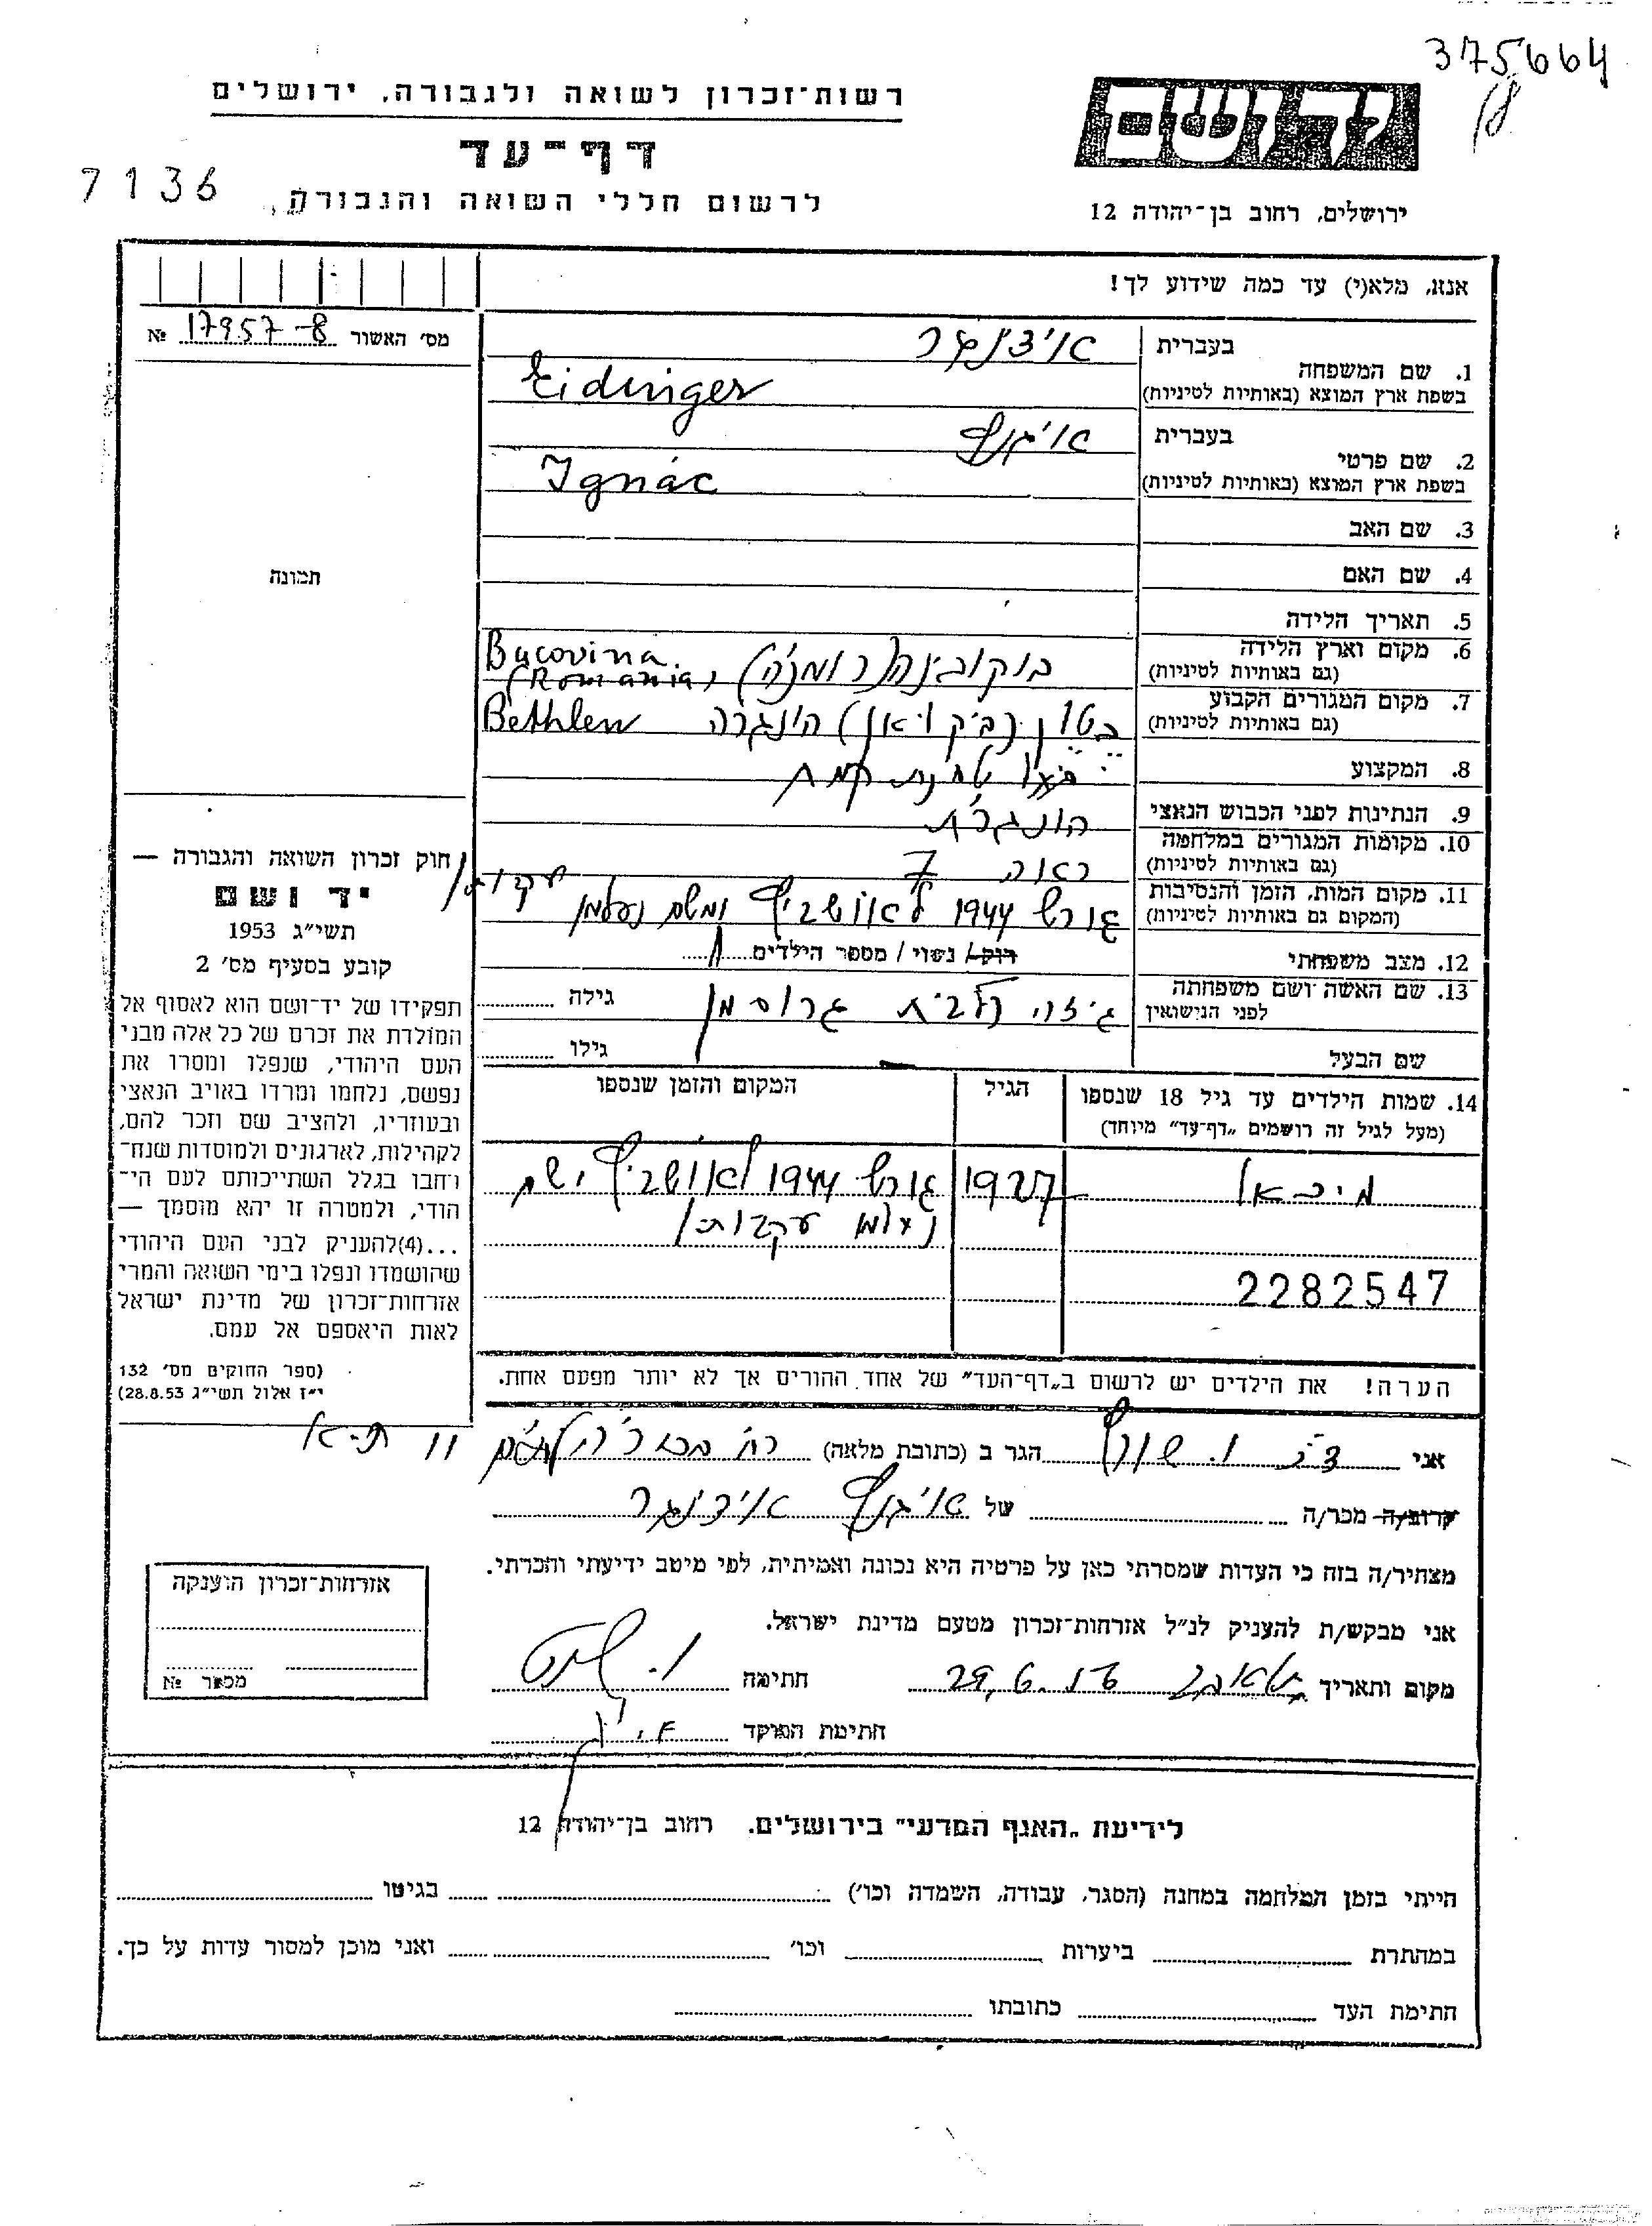 375664
רשות־זכרון לשואה ולגבורה, ירושלים
יד ושם
דף־עד
7136
לרשום חללי השואה והגבורה
ירושלים, רחוב בן־יהודה 12
אנא, מלא(י) עד כמה שידוע לך!
מס׳ האשור 17957-8 №
1. שם המשפחה
בעברית אידינגר
בשפת ארץ המוצא (באותיות לטיניות) Eidinger
2. שם פרטי
בעברית איגנץ
בשפת ארץ המוצא (באותיות לטיניות) Ignác
3. שם האב
4. שם האם
תמונה
5. תאריך הלידה
6. מקום וארץ הלידה
(גם באותיות לטיניות) בוקובינה (רומניה) Bucovina (Romania)
7. מקום המגורים הקבוע
(גם באותיות לטיניות) הונגריה Bethlen
8. המקצוע טחנת קמח
9. הנתינות לפני הכבוש הנאצי הונגרית
10. מקומות המגורים במלחמה
(גם באותיות לטיניות) ראה 7
11. מקום המות, הזמן והנסיבות
(המקום גם באותיות לטיניות) גורש 1944 לאושביץ ומשם נעלמו עקבותיו
12. מצב משפחתי רוק/ נשוי / מספר הילדים 1
13. שם האשה ושם משפחתה
לפני הנישואין גיזה לבית גרוסמן גילה
שם הבעל גילו
14. שמות הילדים עד גיל 18 שנספו
(מעל לגיל זה רושמים „דף־עד״ מיוחד)
הגיל
המקום והזמן שנספו
מיכאל 1927 גורש 1944 לאושביץ ושם
נעלמו עקבותיו
2282547
הערה! את הילדים יש לרשום ב„דף־העד״ של אחד ההורים אך לא יותר מפעם אחת.
חוק זכרון השואה והגבורה —
יד ושם
תשי״ג 1953
קובע בסעיף מס׳ 2
תפקידו של יד־ושם הוא לאסוף אל
המולדת את זכרם של כל אלה מבני
העם היהודי, שנפלו ומסרו את
נפשם, נלחמו ומרדו באויב הנאצי
ובעוזריו, ולהציב שם וזכר להם,
לקהילות, לארגונים ולמוסדות שנח־
רבו בגלל השתייכותם לעם הי־
הודי, ולמטרה זו יהא מוסמך —
...(4)להעניק לבני העם היהודי
שהושמדו ונפלו בימי השואה והמרי
אזרחות־זכרון של מדינת ישראל
לאות היאספם אל עמם.
(ספר החוקים מס׳ 132
י״ז אלול תשי״ג 28.8.53)
אני הגר ב (כתובת מלאה) רח׳ 11 ת-א
קרוב/ה מכר/ה של איגנץ אידינגר
מצהיר/ה בזה כי העדות שמסרתי כאן על פרטיה היא נכונה ואמיתית, לפי מיטב ידיעתי והכרתי.
אני מבקש/ת להעניק לנ״ל אזרחות־זכרון מטעם מדינת ישראל.
מקום ותאריך 29.6 חתימה
חתימת הפוקד
אזרחות־זכרון הוענקה
מספר №
לידיעת „האגף המדעי״ בירושלים. רחוב בן־יהודה 12
הייתי בזמן המלחמה במחנה (הסגר, עבודה, השמדה וכו׳) בגיטו
במחתרת ביערות וכו׳ ואני מוכן למסור עדות על כך.
חתימת העד כתובתו